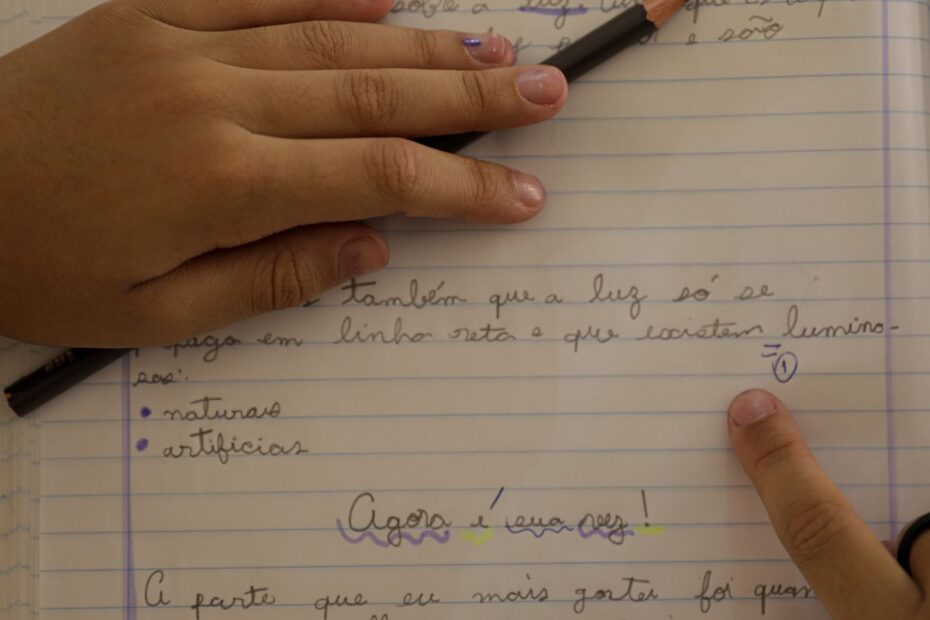 sobre a luz.
e são
também que a luz só se
paga em linha reta e que existem lumino-
sas:
• naturais
• artificias
= ①
Agora é sua vez!
A parte que eu mais gostei foi quan